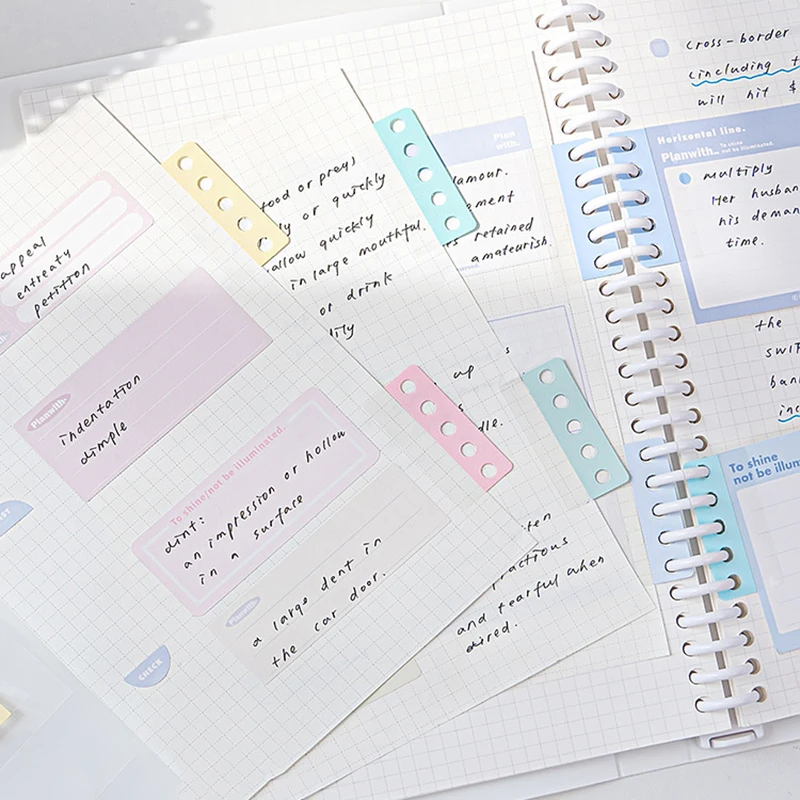 appeal
entreaty
petition
Planwith.
indentation
dimple
To shine/not be illuminated.
dint:
an impression or hollow
in a surface
Planwith.
a large dent in
the car door.
CHECK
food or preys
or quickly
quickly
in large mouthful.
or drink
up
and tearful when
Plan
with.
retained
amateurish.
cross-border
(including
will hit $
Horizontal line.
Planwith.
To shine
not be illuminated.
multiply
Her husban
his deman
time.
the
To shine
not be illum